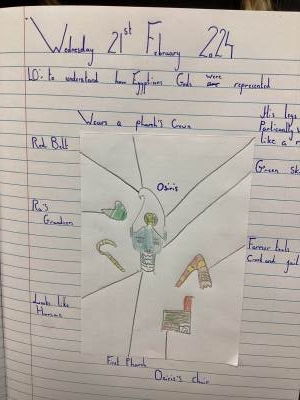 Wednesday 21st February 2024
LO: to understand how Egyptians Gods were represented
Wears a pharoh's Crown
His legs
Partionally
like a
Red Belt
Osiris
Green
Ra's
Grandson
Farmer tools
Crook and
Looks like
Human
First Pharoh
Osiris's chair